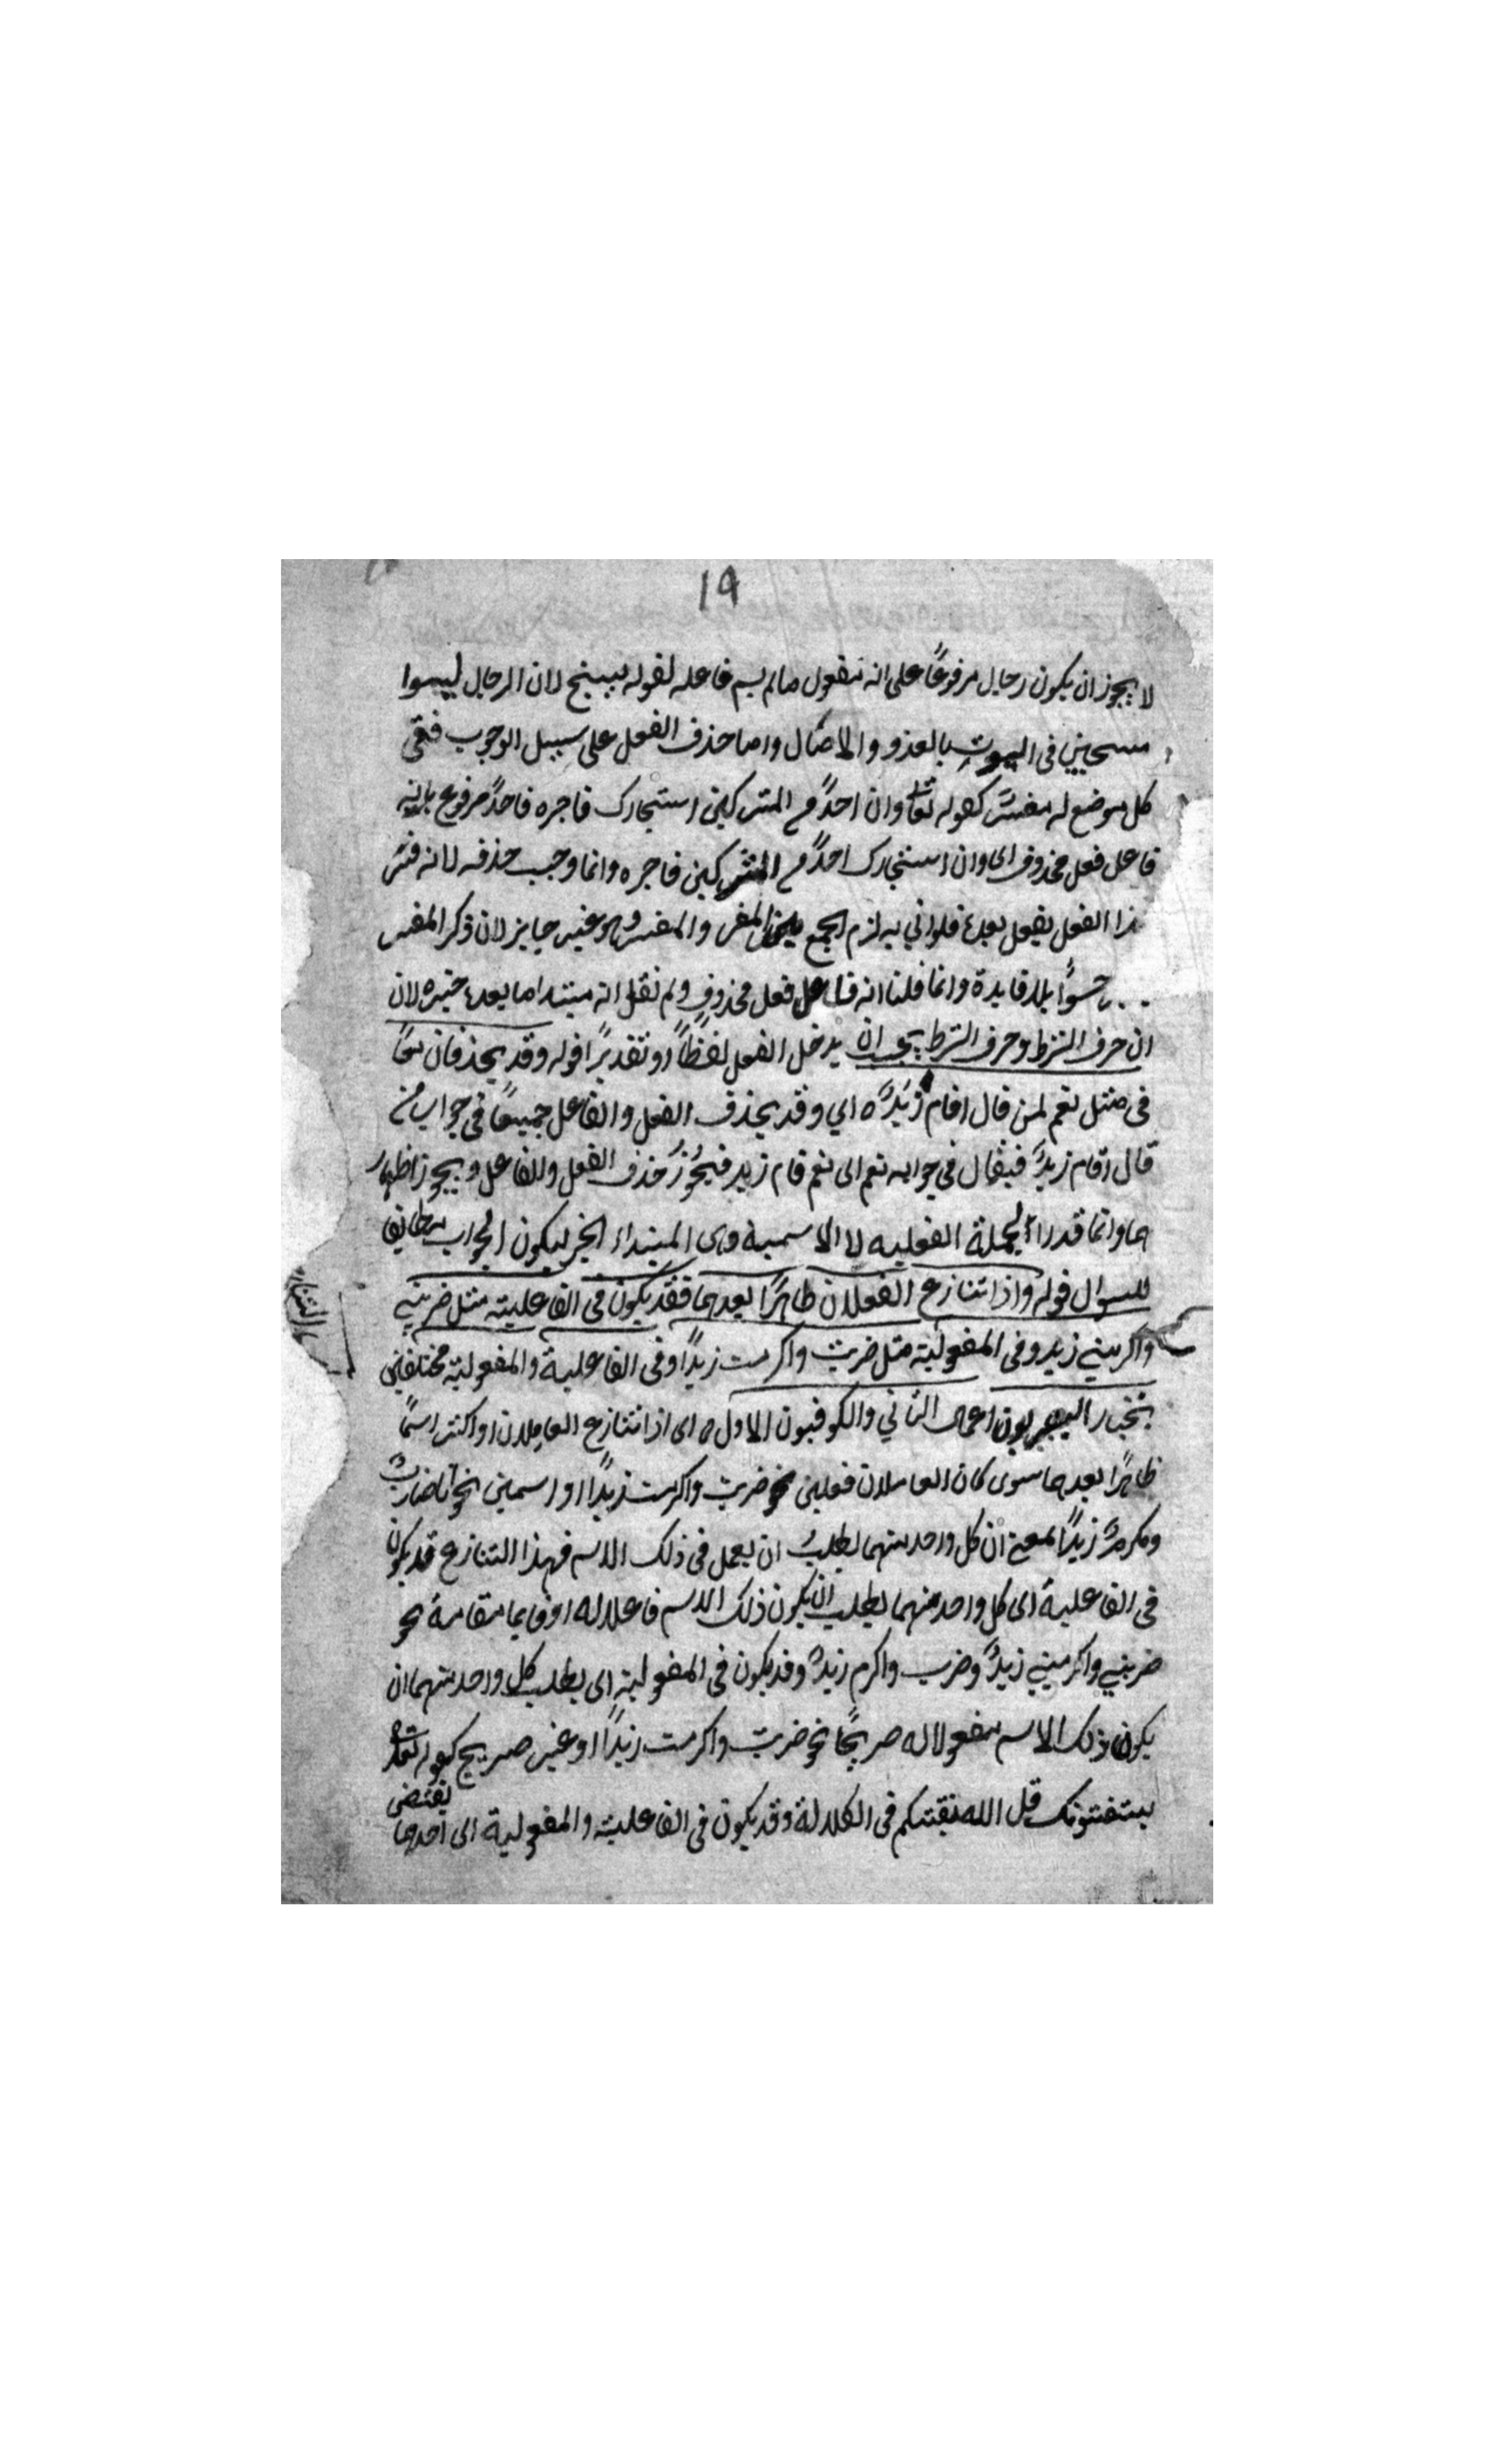 19
لا يجوز ان يكون رجال مرفوعًا على انه مفعول مالم يسم فاعله لقوله يسبح لان الرجال ليسوا
مسبحين فى البيوت بالغدو والاصال واما حذف الفعل على سبيل الوجوب ففى
كل موضع له مفسّر كقوله تعا وان احدٌ من المشركين استجارك فاجره فاحدٌ مرفوع بانه
فاعل فعل محذوف اى وان استجارك احدٌ من المشركين فاجره وانما وجب حذفه لانه فسّر
هذا الفعل بفعل بعده فلو اتي به لزم الجمع بين المفسر والمفسر وهو غير جايز لان ذكر المفسر
حشوًا بلا فايدة وانما قلنا انه فاعل فعل محذوفٍ ولم نقل انه مبتدا ما بعده خبره لان
ان حرف الشرط وحرف الشرط يجب ان يدخل الفعل لفظًا او تقديرًا قوله وقد يحذفان معًا
فى مثل نعم لمن قال اقام زيدٌ ه اي وقد يحذف الفعل والفاعل جميعًا فى جواب من
قال اقام زيدٌ فيقال فى جوابه نعم اى نعم قام زيد فيجوز حذف الفعل والفاعل ويجوز اظهار
هما وانما قدر الجملة الفعليه لا الاسمية وهى المبتداء الخبر ليكون الجواب مطابقا
للسوال قوله واذا تنازع الفعلان ظاهرًا بعدهما فقد يكون فى الفاعلية مثل ضربني
التنازع
واكرمني زيد وفى المفعولية مثل ضربت واكرمت زيدًا وفى الفاعلية والمفعولية مختلفين
يختار البصريون اعمال الثاني والكوفيون الاول ه اى اذا تنازع العاملان او اكثر اسمًا
ظاهرًا بعدهما سوى كان العاملان فعلين نحو ضربت واكرمت زيدًا او اسمين نحو انا ضاربٌ
ومكرمٌ زيدًا بمعنى ان كل واحد منهما يطلبُ ان يعمل فى ذلك الاسم فهذا التنازع قد يكون
فى الفاعلية اى كل واحد منهما يطلب ان يكون ذلك الاسم فاعلا له او قايما مقامه نحو
ضربني واكرمني زيدٌ وضرب واكرم زيدٌ وقد يكون فى المفعولية اى يطلب كل واحد منهما ان
يكون ذلك الاسم مفعولا له صريحًا نحو ضربت واكرمت زيدًا او غير صريح كقوله تعالى
يستفتونك قل الله يفتيكم فى الكلالة وقد يكون فى الفاعلية والمفعولية اى احدهما
يقتضى